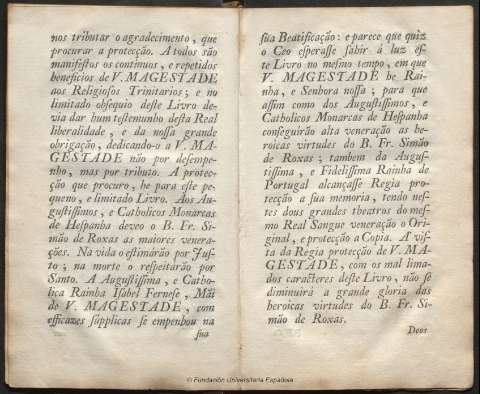 nos tributar o agradecimento, que
procurar a protecção. A todos são
manifestos os continuos, e repetidos
beneficios de V. MAGESTADE
aos Religiosos Trinitarios; e no
limitado obsequio deste Livro de-
via dar hum testemunho desta Real
liberalidade, e da nossa grande
obrigação, dedicando-o a V. MA-
GESTADE não por desempe-
nho, mas por tributo. A protec-
ção que procuro, he para este pe-
queno, e limitado Livro. Aos Au-
gustissimos, e Catholicos Monarcas
de Hespanha deveo o B. Fr. Si-
mão de Roxas as maiores venera-
ções. Na vida o estimárão por Jus-
to; na morte o respeitarão por
Santo. A Augustissima, e Catho-
lica Rainha Isabel Fernese, Mãi
de V. MAGESTADE, com
efficazes súpplicas se empenhou na
sua
sua Beatificação: e parece que quiz
o Ceo esperasse sahir á luz es-
te Livro no mesmo tempo, em que
V. MAGESTADE he Rai-
nha, e Senhora nossa; para que
assim como dos Augustissimos, e
Catholicos Monarcas de Hespanha
conseguirão alta veneração as he-
roicas virtudes do B. Fr. Simão
de Roxas; tambem da Augus-
tissima, e Fidelissima Rainha de
Portugal alcançasse Regia pro-
tecção a sua memoria, tendo nes-
tes dous grandes theatros do mes-
mo Real Sangue veneração o Ori-
ginal, e protecção a Copia. A' vis-
ta da Regia protecção de V. MA-
GESTADE, com os mal lima-
dos caracteres deste Livro, não se
diminuirá a grande gloria das
heroicas virtudes do B. Fr. Si-
mão de Roxas.
Deos
© Fundación Universitaria Española